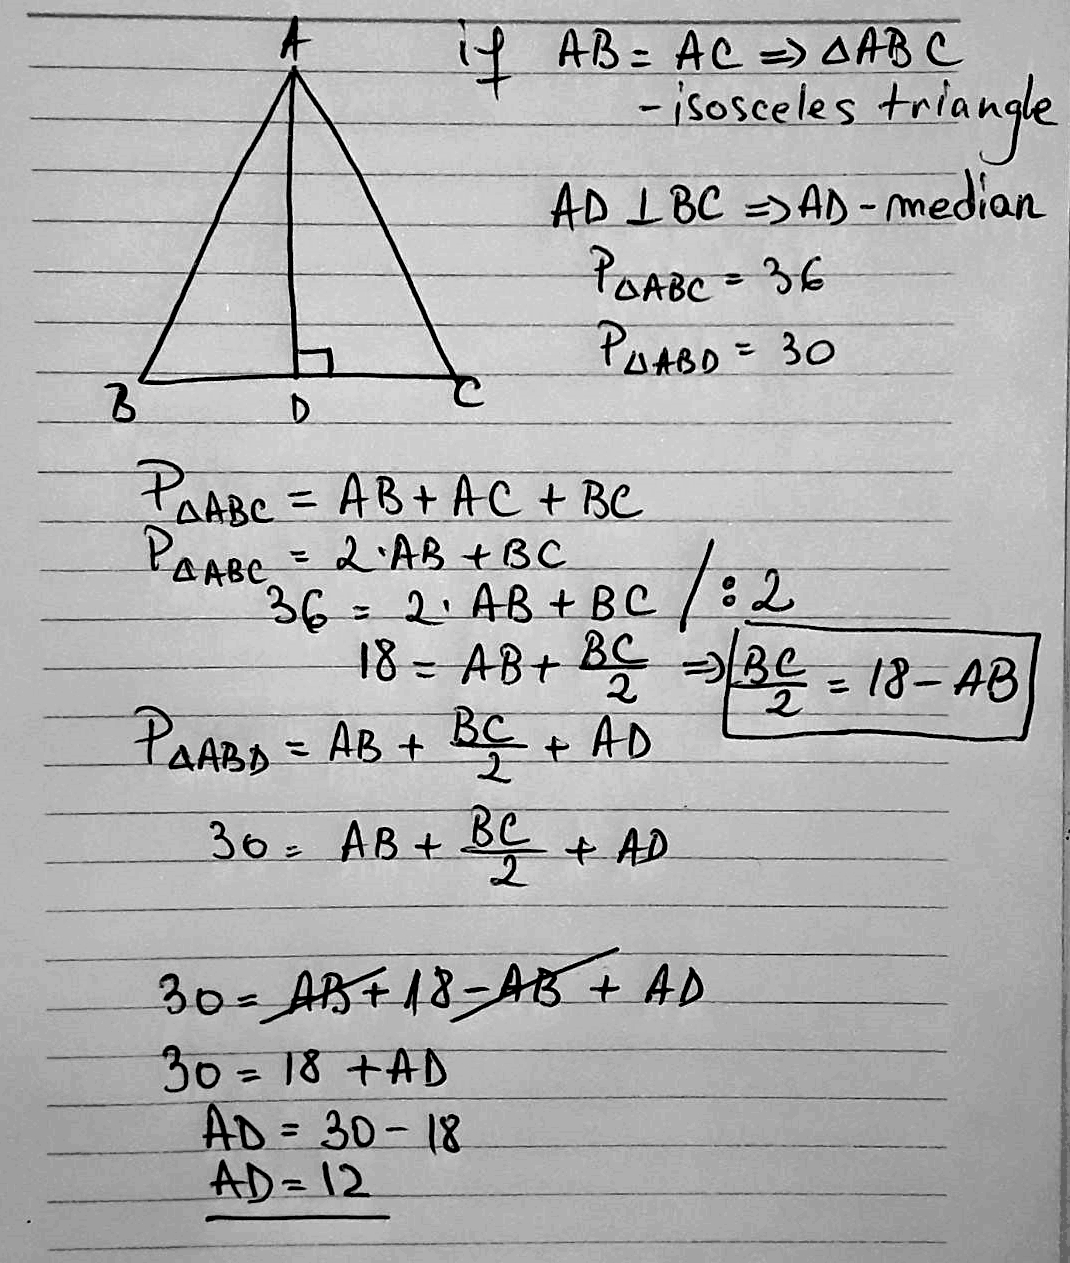 A
if AB = AC ⇒ △ABC
- isosceles triangle
AD ⊥ BC ⇒ AD - median
P△ABC = 36
P△ABD = 30
B D C
P△ABC = AB + AC + BC
P△ABC = 2·AB + BC
36 = 2·AB + BC /:2
18 = AB + BC/2 ⇒ BC/2 = 18 - AB
P△ABD = AB + BC/2 + AD
30 = AB + BC/2 + AD
30 = AB + 18 - AB + AD
30 = 18 + AD
AD = 30 - 18
AD = 12